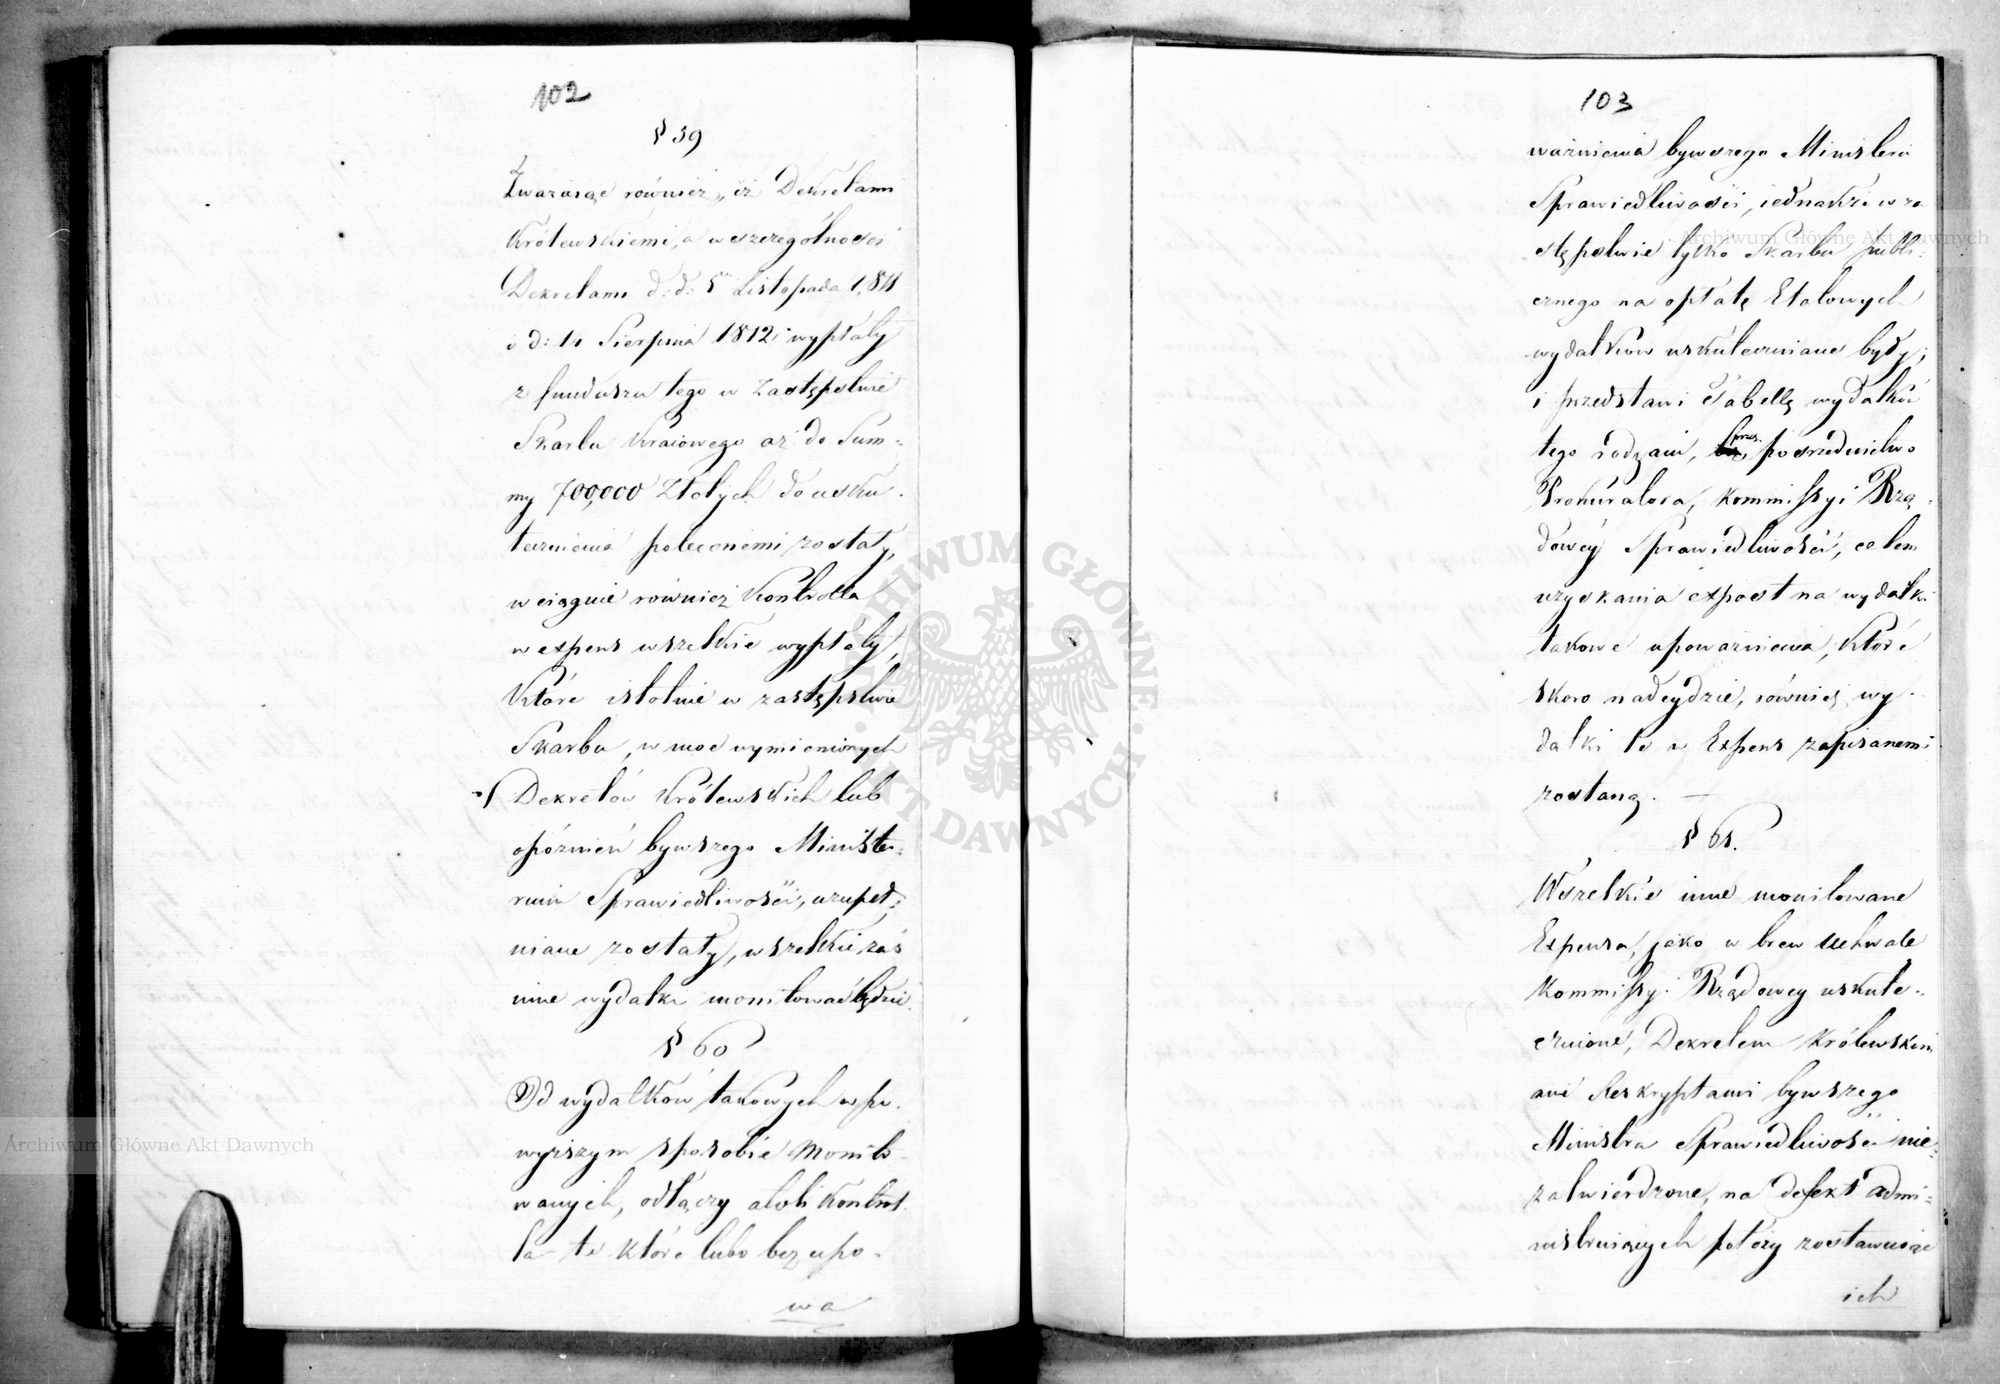 102
§ 59
Zwarzaiąc również, iż Dekretami
Królewskiemi, a w szczególności
Dekretami d: d: 5 Listopada 1,811
i d: 14 Sierpnia 1812 wypłaty
z funduszu tego w Zastępstwie
Skarbu Kraiowego aż do Sum=
my 700,000 Złotych do usku-
tecznienia poleconemi zostały,
wciągnie również Kontrolla
w expens wszelkie wypłaty,
Które istotnie w zastępstwie
Skarbu, w moc wymienionych
Dekretów Królewskich lub
opóźnień bywszego Ministe=
rium Sprawiedliwości, uzupeł=
niane zostały, wszelkie zaś
inne wydatki monitować będzie.
§ 60
Od wydatków takowych w po-
wyższym sposobie monito-
wanych, odłączy atoli Kontrol-
la te które lubo bez upo-
wa
103
ważnienia bywszego Ministra
Sprawiedliwości, iednakże w za
stępstwie tylko Skarbu publi=
cznego na opłatę Etatowych
wydatków uskuteczniane były;
i przedstawi Tabellę wydatków
tego rodzaiu, przez pośrednictwo
Prokuratora, Kommissyi Rzą-
dówéy Sprawiedliwości, celem
uzyskania expost na wydatki
takowe upoważnienia, które
skoro nadeydzie, również wy-
datki te w Expens zapisanemi
zostaną. —
§ 61.
Wszelkie inne monitowane
Expensa, jako w brew Uchwale
Kommissyi Rządowey uskute-
cznione, Dekretem Królewskim
ani Reskryptami bywszego
Ministra Sprawiedliwości nie=
zatwierdzone, na defekt admi=
nistruiących położy zostawuiąc
ich
Archiwum Główne Akt Dawnych
Archiwum Główne Akt Dawnych
ARCHIWUM GŁÓWNE AKT DAWNYCH